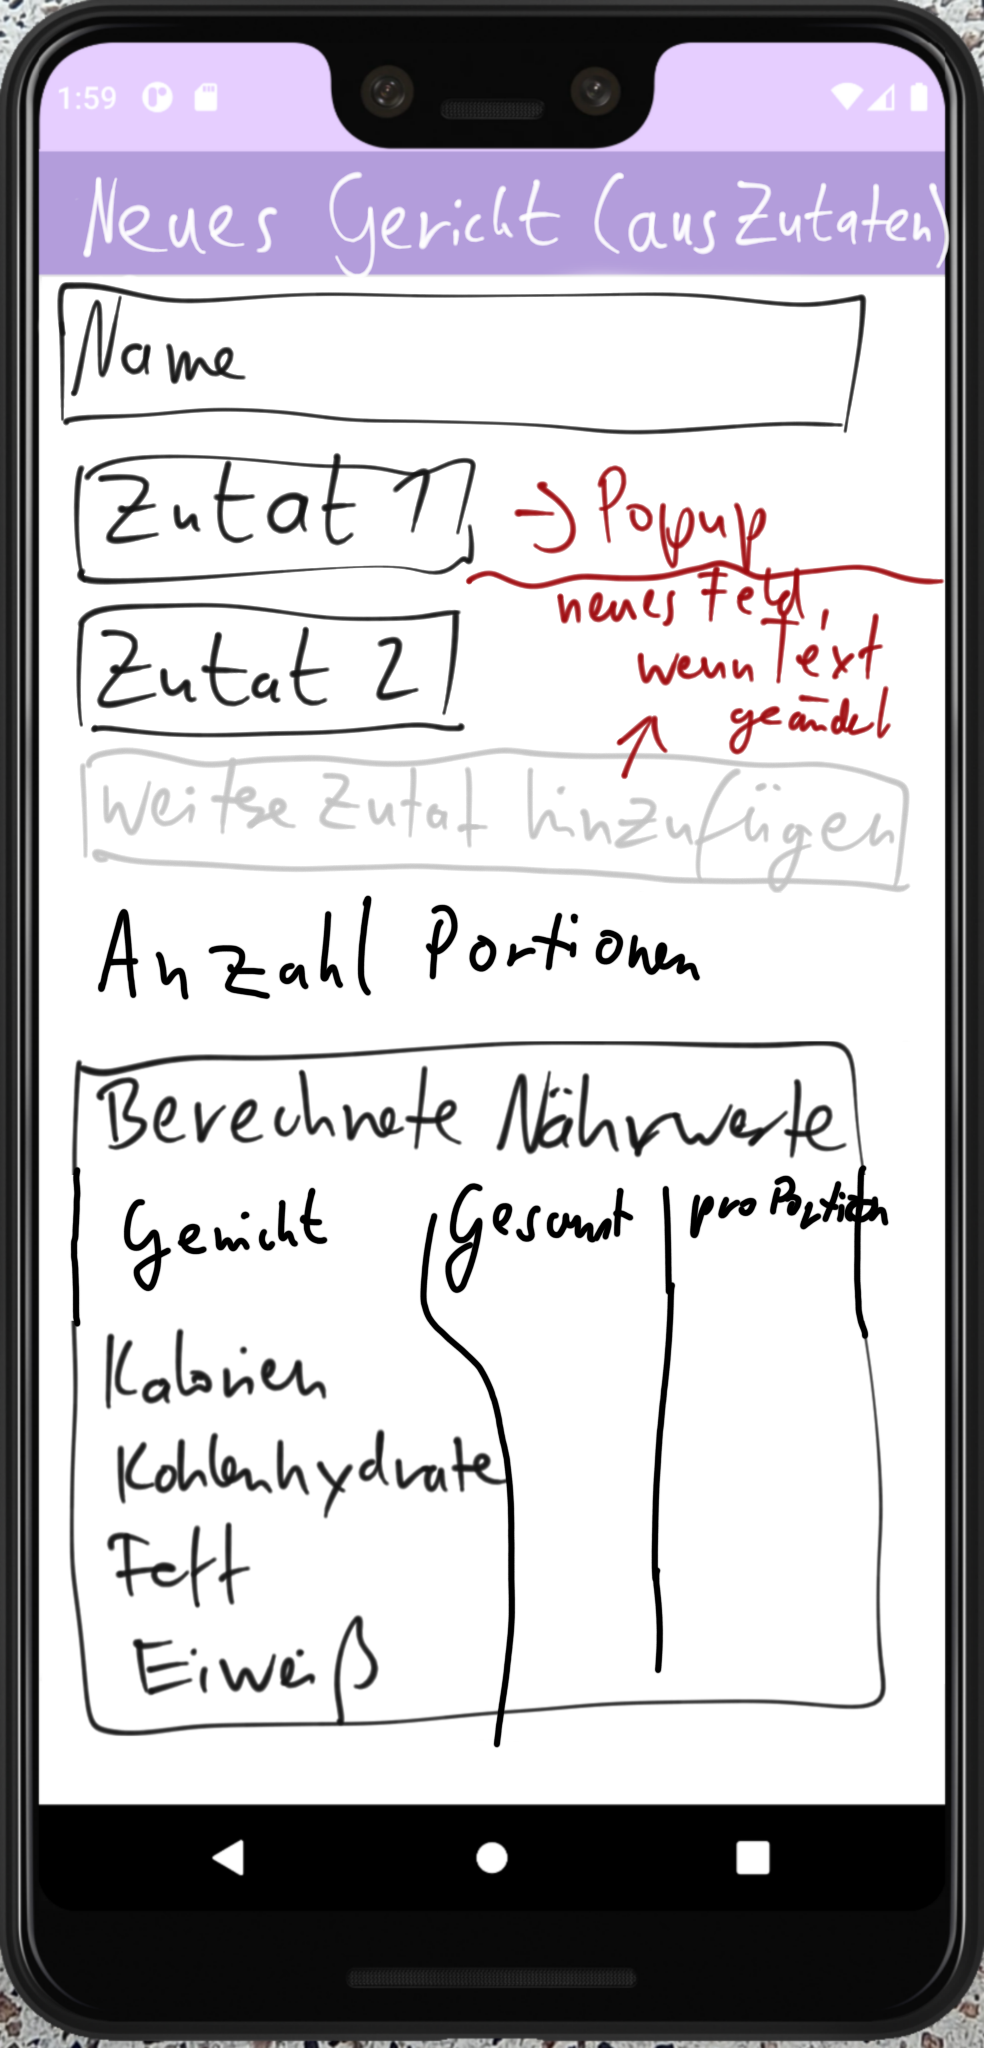 1:59
Neues Gericht (aus Zutaten)
Name
Zutat 1
→ Popup
neues Feld,
wenn Text
geändet
Zutat 2
weitere Zutat hinzufügen
Anzahl Portionen
Berechnete Nährwerte
Gewicht
Gesamt
pro Portion
Kalorien
Kohlenhydrate
Fett
Eiweiß